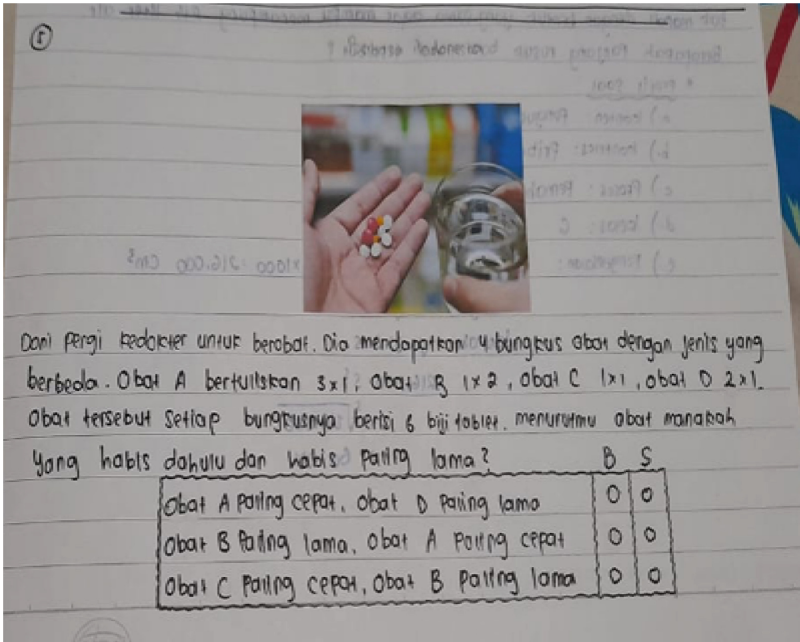 5
Dani pergi kedokter untuk berobat. Dia mendapatkan 4 bungkus obat dengan jenis yang
berbeda. Obat A bertuliskan 3x1, Obat B 1x2, obat C 1x1, obat D 2x1.
Obat tersebut setiap bungkusnya berisi 6 biji tablet. menurutmu obat manakah
yang habis dahulu dan habis paling lama? B S
Obat A paling cepat, Obat D paling lama O O
Obat B Paling lama, Obat A paling cepat O O
Obat C paling cepat, Obat B paling lama O O